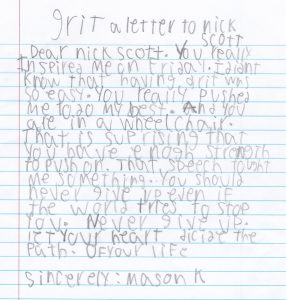 grit a letter to nick
scott
Dear nick scott. You really
Inspired me on Friday. I didnt
know that having grit was
so easy. You really pushed
me to do my best. And you
are in a wheelchair.
That is suprising that
you have enogh strength
to push on. That speech tought
me something. You should
never give up even if
the world tries to stop
you. Never give up.
let your heart dictate the
path. Of your life
sincerely: mason K